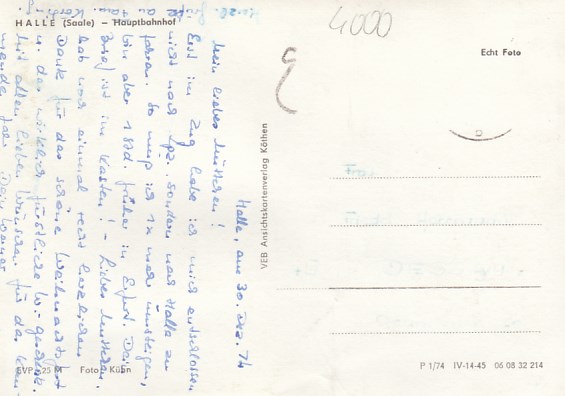 HALLE (Saale) – Hauptbahnhof
4000
Echt Foto
VEB Ansichtskartenverlag Köthen
EVP –,25 M Foto: Kühn
P 1/74 IV-14-45 06 08 32 214
Halle, am 30. Dez. 74
Mein liebes Muttchen!
Erst im Zug habe ich mich entschlossen
nicht nach Lpz. sondern nach Halle zu
fahren. So muß ich 1x mehr umsteigen,
bin aber 1 Std. früher in Erfurt. Dein
Brief ist im Kasten! – Liebes Muttchen,
hab noch einmal recht herzlichen
Dank für das schöne Weihnachtsfest
u. die wirklich fürstliche W.-geschenke.
Mit allen lieben Wünschen für das kom-
mende Jahr Dein